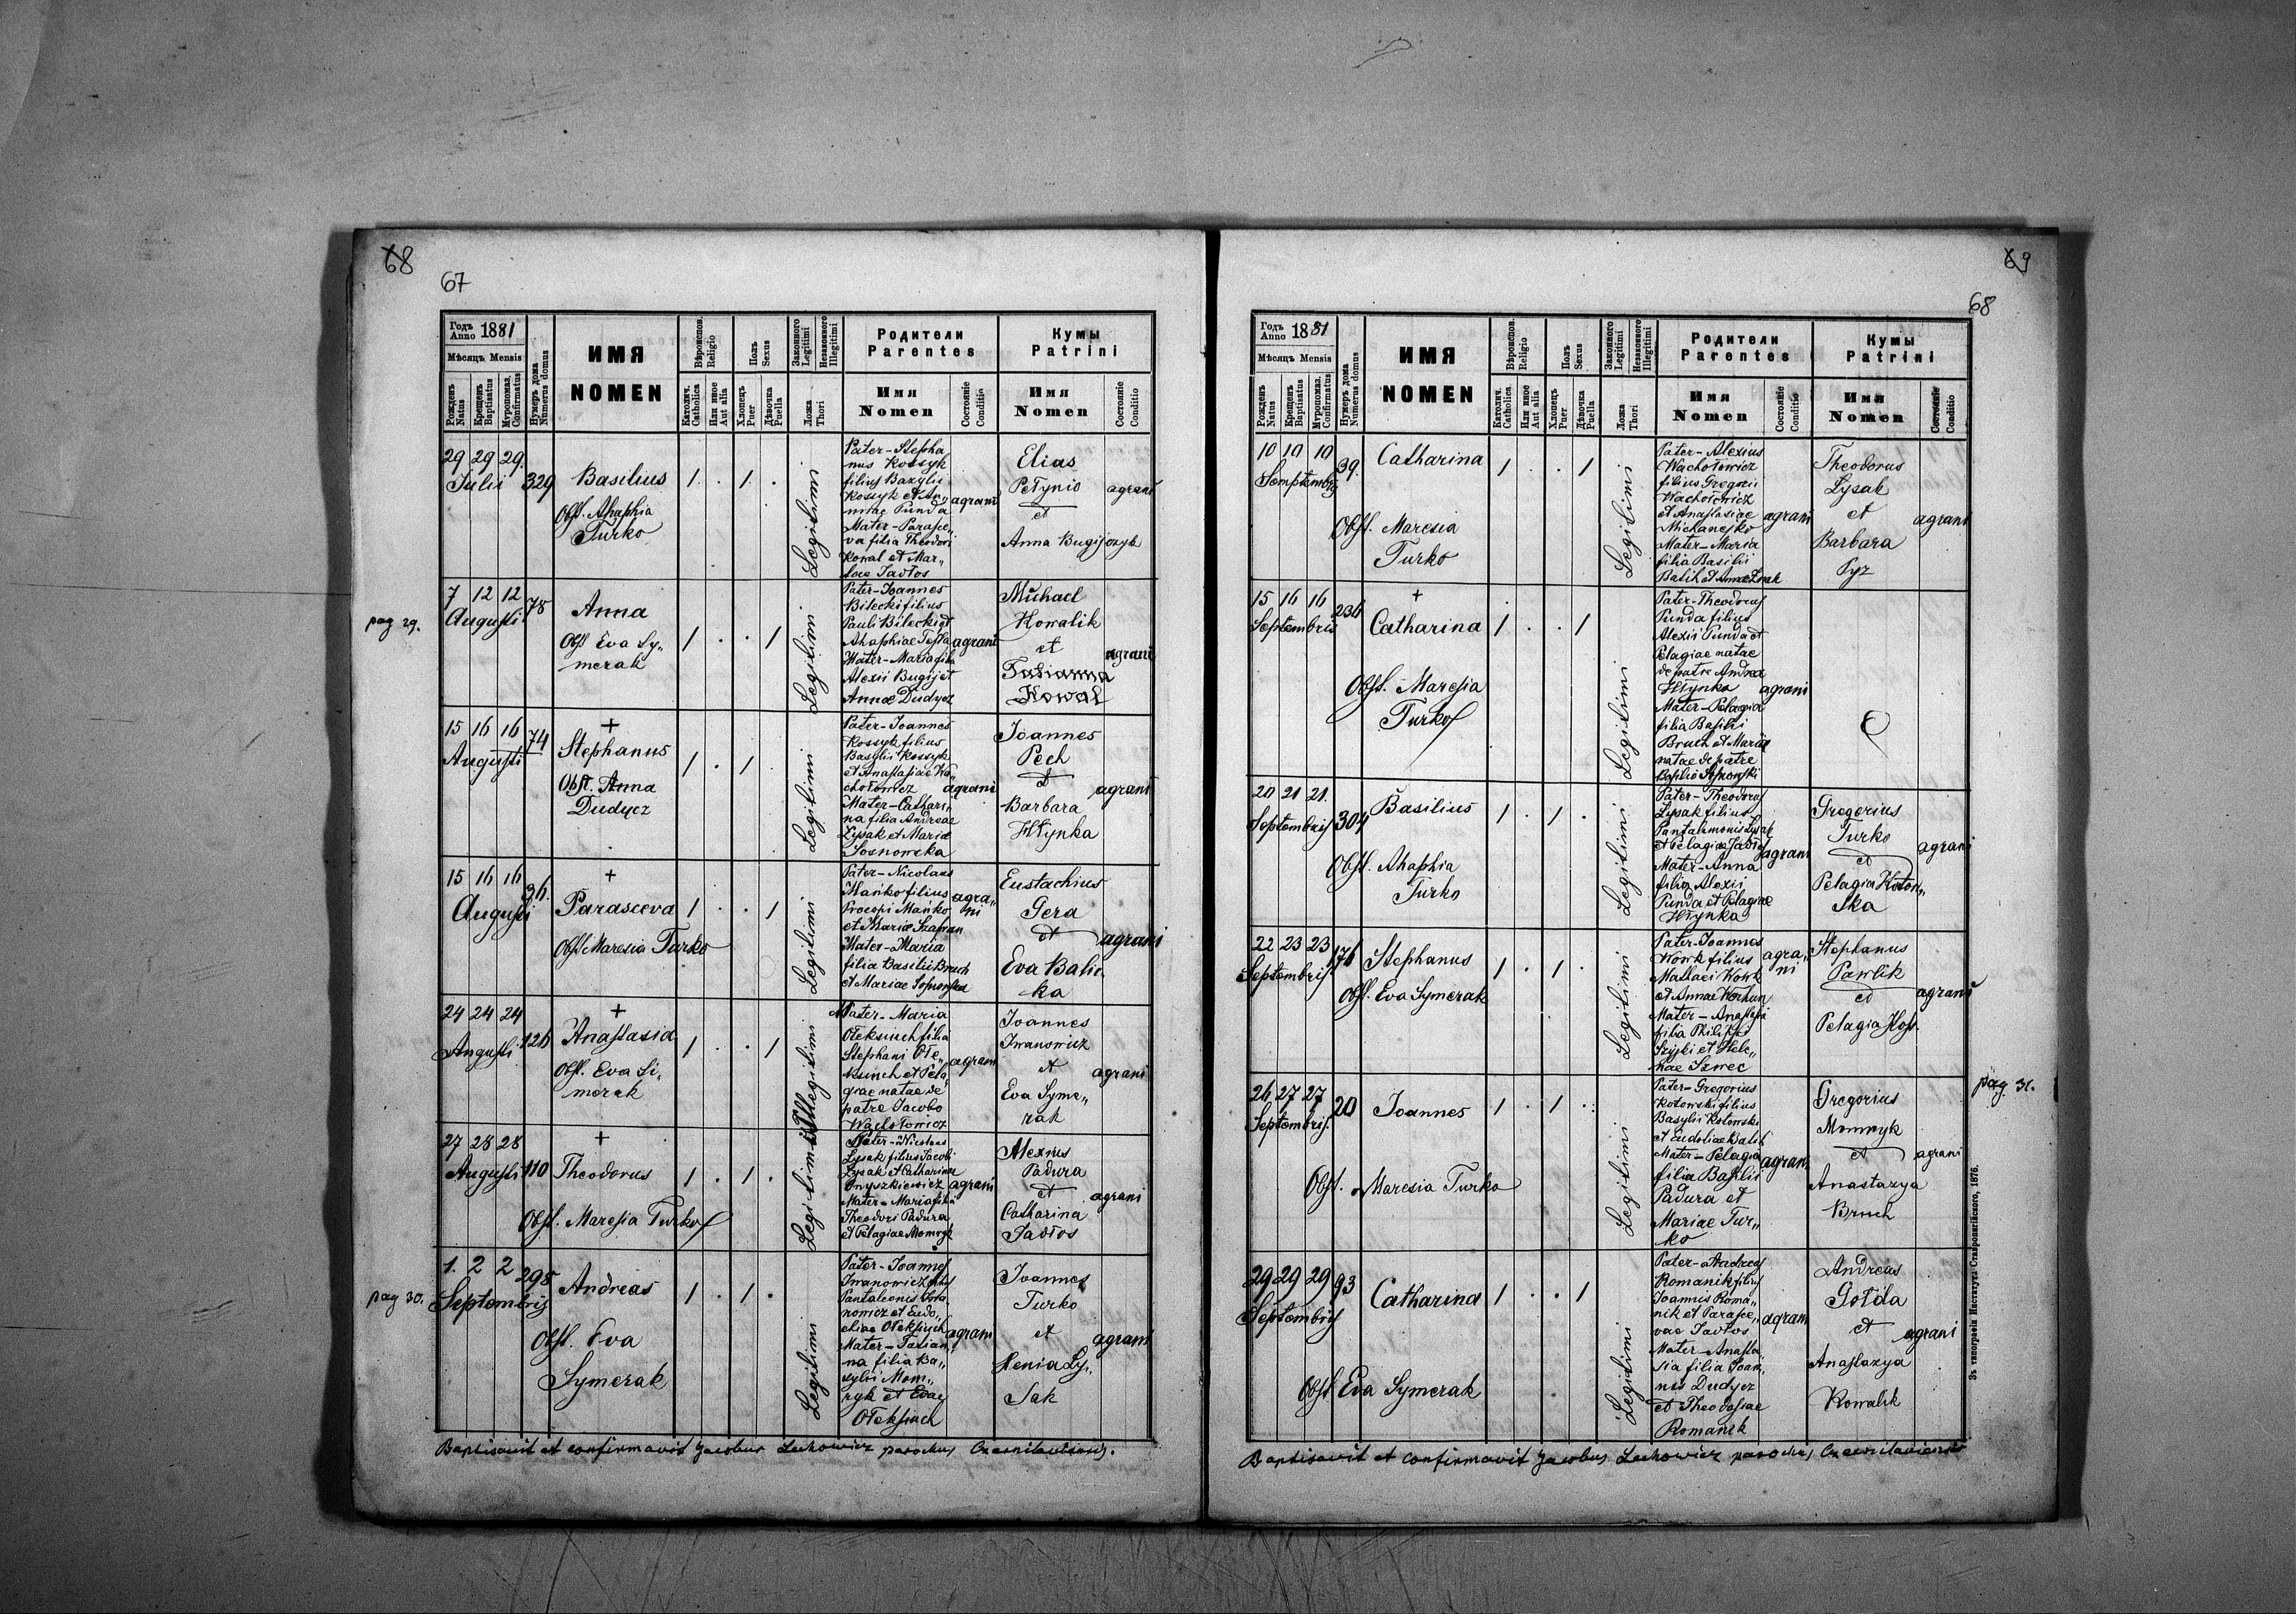 68
67
Годъ
Anno 1881
Мѣсяцъ Mensis
Рожденъ
Natus
Крещенъ
Baptisatus
Муропомаз.
Confirmatus
Нумеръ дома
Numerus domus
ИМЯ
NOMEN
Вѣроиспов.
Religio
Католич.
Catholica
Или иное
Aut alia
Полъ
Sexus
Хлопецъ
Puer
Дѣвочка
Puella
Законного
Legitimi
Незаконного
Illegitimi
Ложа
Thori
Родители
Parentes
Имя
Nomen
Состояніе
Conditio
Кумы
Patrini
Имя
Nomen
Состояніе
Conditio
29 29 29.
Julii
329
Basilius
Obst. Ahaphia
Turko
1 . 1 .
Legitimi
Pater - Stepha
nus Kossyk
filius Bazylii
Kossyk et An„
nae Punda
Mater - Parasce„
va filia Theodori
Kowal et Mar„
tae Jadłos
agrani
Elias
Petynio
et
Anna Bugijczyk
agrani
pag 29.
7 12 12
Augusti
78
Anna
Obst Eva Sy„
merak
1 . . 1
Legitimi
Pater - Joannes
Bilecki filius
Pauli Bilecki et
Mater - Maria filia
Alexii Bugij et
Annae Dudycz
agrani
Michael
Kowalik
et
Tatianna
Kowal
agrani
15 16 16
Augusti
74
+
Stephanus
Obst. Anna
Dudycz
1 . 1 .
Legitimi
Pater - Joannes
Kossyk filius
Basylii Kossyk
et Anastasiae Wa„
chołowicz
Mater - Cathari„
na filia Andreae
Łysak et Mariae
Sosnowska
agrani
Joannes
Pech
et
Barbara
Hłynka
agrani
15 16 16
Augusti
36.
+
Parasceva
Obst Maresia Turko
1 . . 1
Legitimi
Pater - Nicolaus
Mańko filius
Procopi Mańko
et Mariae Szafran
Mater - Maria
filia Basilii Bruch
et Mariae Sosnowska
agra„
ni
Eustachius
Gera
et
Eva Balic
ka
agrani
24 24 24
Augusti
126
+
Anastasia
Obst. Eva Si„
merak
1 . . 1
Illegitimi
Mater - Maria
Ołeksiuch filia
Stephani Ołe„
ksiuch et Pela„
giae natae de
patre Jacobo
Wachołowicz
agrani
Joannes
Iwanowicz
et
Eva Syme„
rak
agrani
27 28 28
Augusti
110
+
Theodorus
Obst. Maresia Turko
1 . 1 .
Legitimi
Pater - Nicolaus
Łysak filius Jacobi
Łysak et Catharinae
Onyszkiewicz
Mater - Maria filia
Theodori Padura
et Pelagiae Momryk
agrani
Alexius
Padura
et
Catharina
Jadłos
agrani
pag 30.
1. 2 2
Septembris
295
Andreas
Obst. Eva
Symerak
1 . 1 .
Legitimi
Pater - Joannes
Iwanowicz filius
Pantaleonis Iwa„
nowicz et Eudo„
chiae Ołeksiuch
Mater - Tatian„
na filia Ba„
sylii Mom„
ryk et Evae
Ołeksiuch
agrani
Joannes
Turko
et
Xenia Ły„
sak
agrani
Baptisavit et confirmavit Jacobus Lechowicz parochus Czernilaviensis.
69
68
Годъ
Anno 1881
Мѣсяцъ Mensis
Рожденъ
Natus
Крещенъ
Baptisatus
Муропомаз.
Confirmatus
Нумеръ дома
Numerus domus
ИМЯ
NOMEN
Вѣроиспов.
Religio
Католич.
Catholica
Или иное
Aut alia
Полъ
Sexus
Хлопецъ
Puer
Дѣвочка
Puella
Законного
Legitimi
Незаконного
Illegitimi
Ложа
Thori
Родители
Parentes
Имя
Nomen
Состояніе
Conditio
Кумы
Patrini
Имя
Nomen
Состояніе
Conditio
10 10 10
Semptembris
39.
Catharina
Obst. Maresia
Turko
1 . . 1
Legitimi
Pater - Alexius
Wachołowicz
filius Gregorii
Wachołowicz
et Anastasiae
Michanejko
Mater - Maria
filia Basilii
Balih et Annae Łysak
agrani
Theodorus
Łysak
et
Barbara
Pyz
agrani
15 16 16
Septembris
236
+
Catharina
Obst. Maresia
Turko
1 . . 1
Legitimi
Pater - Theodorus
Punda filius
Alexii Punda et
Pelagiae natae
de patre Andrea
Hłynka
Mater - Pelagia
filia Basilii
Bruch et Mariae
natae de patre
Basilio Sosnowski
agrani
20 21 21.
Septembris
304
Basilius
Obst. Ahaphia
Turko
1 . 1 .
Legitimi
Pater - Theodorus
Łysak filius
Pantalemonis Łysak
et Pelagiae Jadłos
Mater - Anna
filia Alexii
Punda et Pelagiae
Hłynka
agrani
Gregorius
Turko
et
Pelagia Koton„
ska
agrani
22 23 23
Septembris.
176
Stephanus
Obst. Eva Symerak
1 . 1 .
Legitimi
Pater - Joannes
Wowk filius
Matthaei Wowk
et Annae Korhun
Mater - Anastasia
filia Philippi
Szyjki et Hele„
nae Szwec
agra„
ni
Stephanus
Pawlik
et
Pelagia Kos.
agrani
pag. 31.
26 27 27
Septembris.
20
Joannes
Obst. Maresia Turko
1 . 1 .
Legitimi
Pater - Gregorius
Kotowski filius
Basylii Kotowski
et Eudokiae Balih
Mater - Pelagia
filia Basilii
Padura et
Mariae Tur„
ko
agrani
Gregorius
Momryk
et
Anastazya
Bruch
agrani
29 29 29
Septembris
93
Catharina
Obst Eva Symerak
1 . . 1
Legitimi
Pater - Andreas
Romanik filius
Joannis Roma„
nik et Parasce„
vae Jadłos
Mater - Anasta„
sia filia Joan„
nis Dudycz
et Theodosiae
Romanik
agrani
Andreas
Gołda
et
Anastazya
Kowalik
agrani
Baptisavit et confirmavit Jacobus Lechowicz parochus Czernilaviensis
Зъ типографіи Института Ставропигійского, 1876.